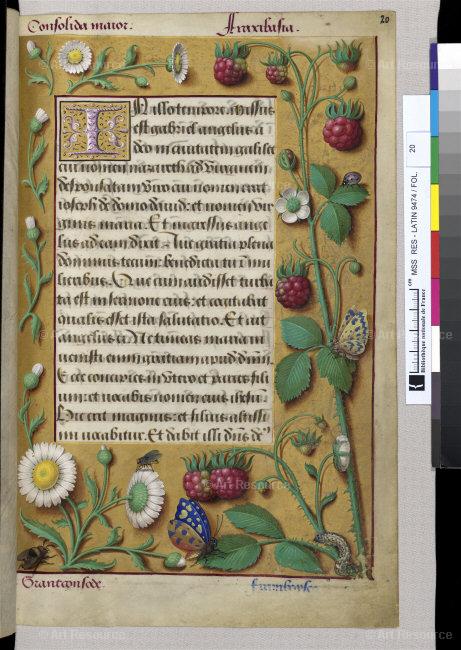 Consolida maior.
Araxibasia.
20
In illo tempore: Missus
est gabriel angelus a
deo in ciuitatem galilee
cui nomen nazareth ad Virginem
desponsatam Viro cui nomen erat
ioseph de domo dauid: et nomen vir
ginis maria. Et ingressus ange
lus ad eam dixit. Aue gratia plena
dominus tecum: benedicta tu in mu
lieribus. Que cum audisset turba
ta est in sermone eius: et cogitabat
qualis esset ista salutatio. Et ait
angelus ei. Ne timeas maria in
uenisti enim gratiam apud deum.
Ecce concipies in Vtero et paries fili
um: et vocabis nomen eius ihesum.
Hic erit magnus: et filius altissi
mi vocabitur. Et dabit illi dns de
Grant consode.
MSS RES - LATIN 9474 / FOL. 20
Bibliothèque nationale de France
© Art Resource